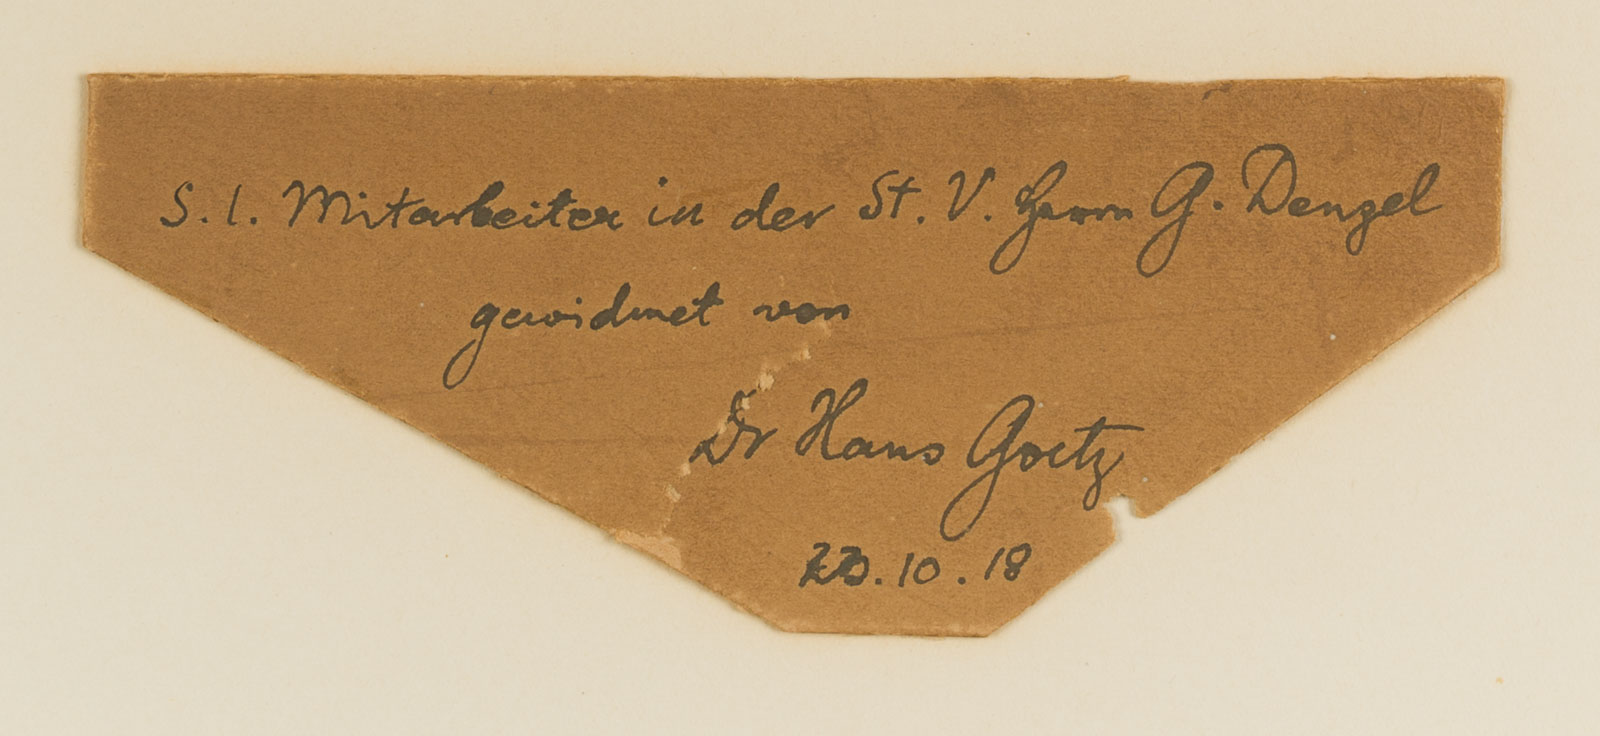 S. l. Mitarbeiter in der St. V. Herrn G. Denzel
gewidmet von
Dr Hans Goetz
.10.18